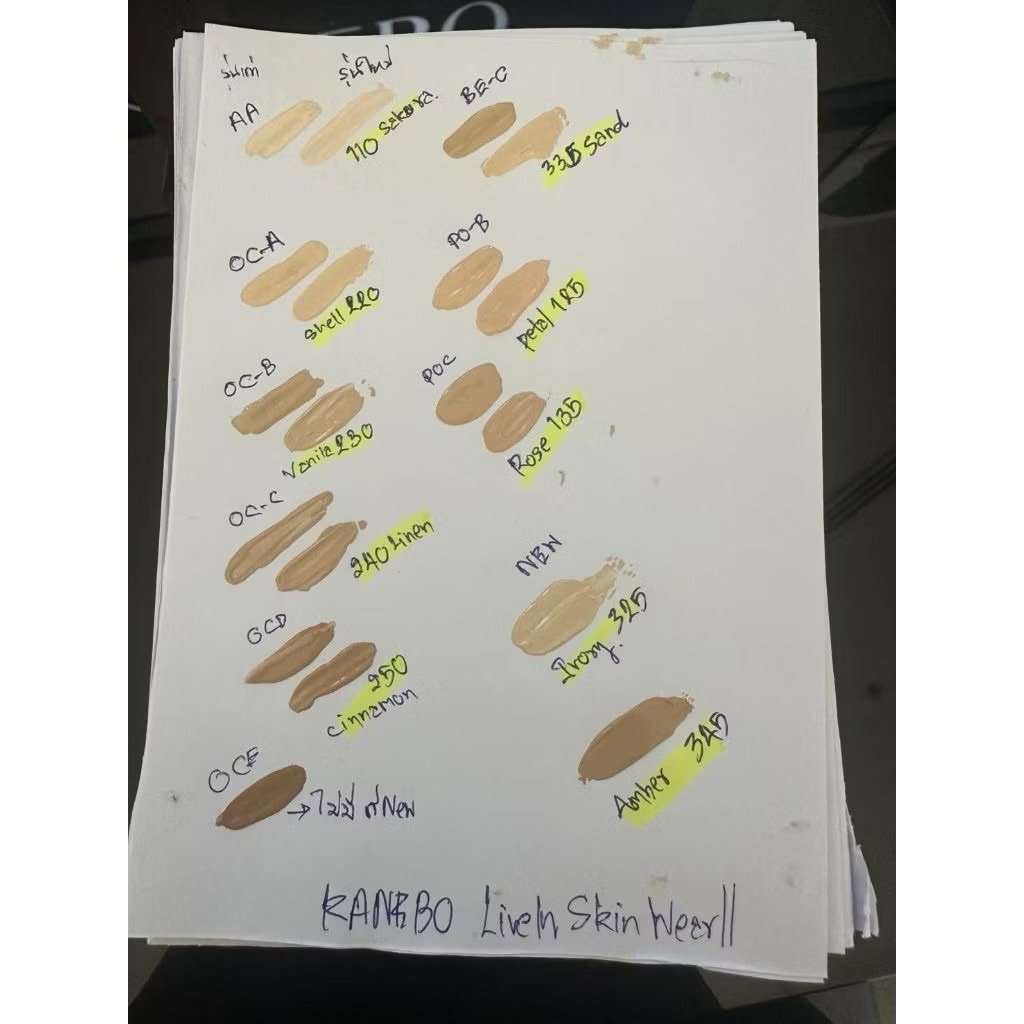 รุ่นเก่า รุ่นใหม่
AA
110 Sakura.
BE-C
335 Sand
OC-A
Shell 220
PO-B
Petal 125
OC-B
Vanila 230
POC
Rose 135
OC-C
240 Linen
NEW
Ivory 325
OCD
250
cinnamon
Amber 345
OCE
→ ไม่มี สี New
KANEBO LiveIn Skin Wear II